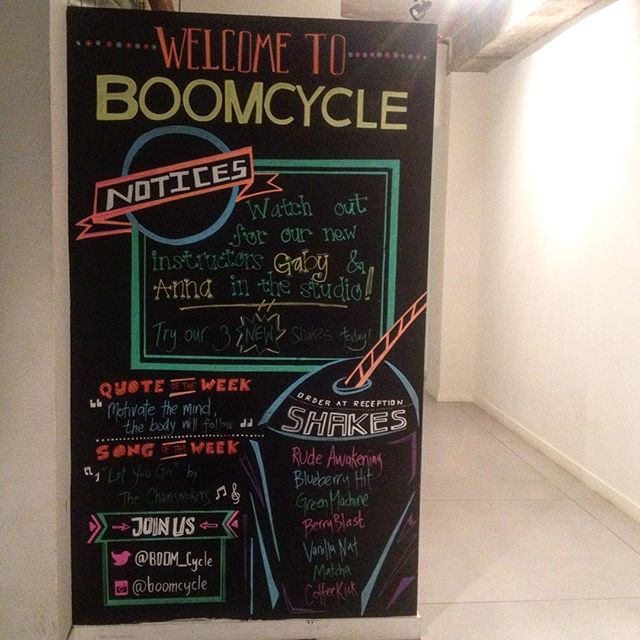 WELCOME TO
BOOMCYCLE
NOTICES
Watch out
for our new
instructors Gaby &
Anna in the studio!
Try our 3 NEW shakes today!
QUOTE OF THE WEEK
"Motivate the mind,
the body will follow."
SONG OF THE WEEK
"Let You Go" by
The Chainsmokers
JOIN US
@BOOM_Cycle
@boomcycle
ORDER AT RECEPTION
SHAKES
Rude Awakening
Blueberry Hit
Green Machine
Berry Blast
Vanilla Nut
Matcha
Coffee Kick